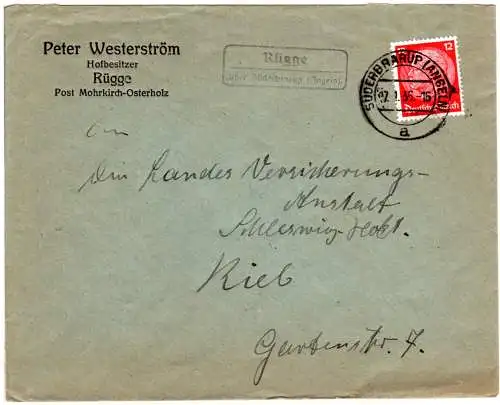 Peter Westerström
Hofbesitzer
Rügge
Post Mohrkirch-Osterholz
Rügge
über Süderbrarup (Angeln)
SÜDERBRARUP (ANGELN)
a
12
Deutsches Reich
An
Die Landes Versicherungs-
Anstalt
Schleswig-Holst.
Kiel
Gartenstr. 7